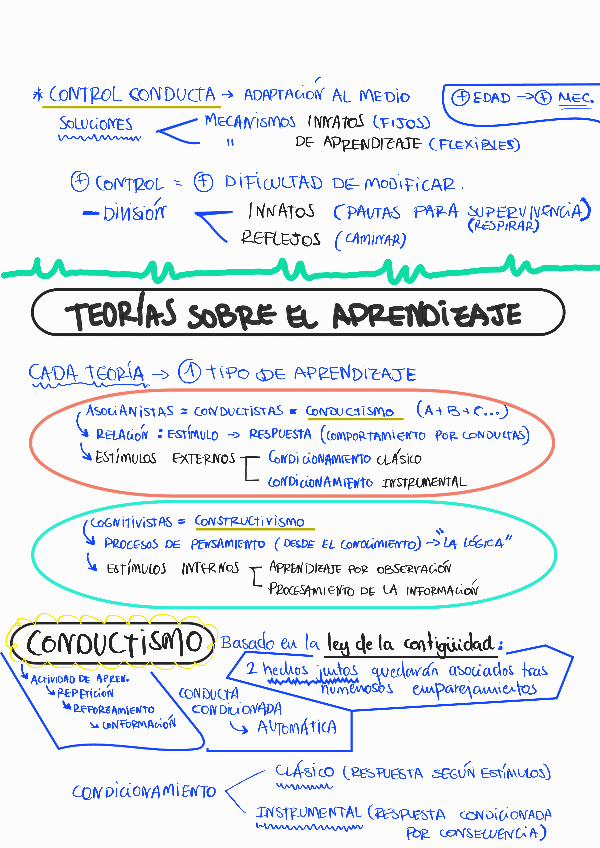 * CONTROL CONDUCTA → ADAPTACIÓN AL MEDIO
⊕ EDAD → ⊕ MEC.
SOLUCIONES
MECANISMOS INNATOS (FIJOS)
" DE APRENDIZAJE (FLEXIBLES)
⊕ CONTROL = ⊕ DIFICULTAD DE MODIFICAR.
- DIVISIÓN
INNATOS (PAUTAS PARA SUPERVIVENCIA)
(RESPIRAR)
REFLEJOS (CAMINAR)
TEORÍAS SOBRE EL APRENDIZAJE
CADA TEORÍA → ① TIPO DE APRENDIZAJE
ASOCIANISTAS = CONDUCTISTAS = CONDUCTISMO (A+B+C...)
↳ RELACIÓN : ESTÍMULO → RESPUESTA (COMPORTAMIENTO POR CONDUCTAS)
↳ ESTÍMULOS EXTERNOS
CONDICIONAMIENTO CLÁSICO
CONDICIONAMIENTO INSTRUMENTAL
COGNITIVISTAS = CONSTRUCTIVISMO
↳ PROCESOS DE PENSAMIENTO (DESDE EL CONOCIMIENTO) → "LA LÓGICA"
↳ ESTÍMULOS INTERNOS
APRENDIZAJE POR OBSERVACIÓN
PROCESAMIENTO DE LA INFORMACIÓN
CONDUCTISMO Basado en la ley de la contigüidad :
2 hechos juntos quedarán asociados tras
numerosos emparejamientos
↳ ACTIVIDAD DE APREN.
↳ REPETICIÓN
↳ REFORZAMIENTO
↳ CONFORMACIÓN
CONDUCTA
CONDICIONADA
↳ AUTOMÁTICA
CONDICIONAMIENTO
CLÁSICO (RESPUESTA SEGÚN ESTÍMULOS)
INSTRUMENTAL (RESPUESTA CONDICIONADA
POR CONSECUENCIA)